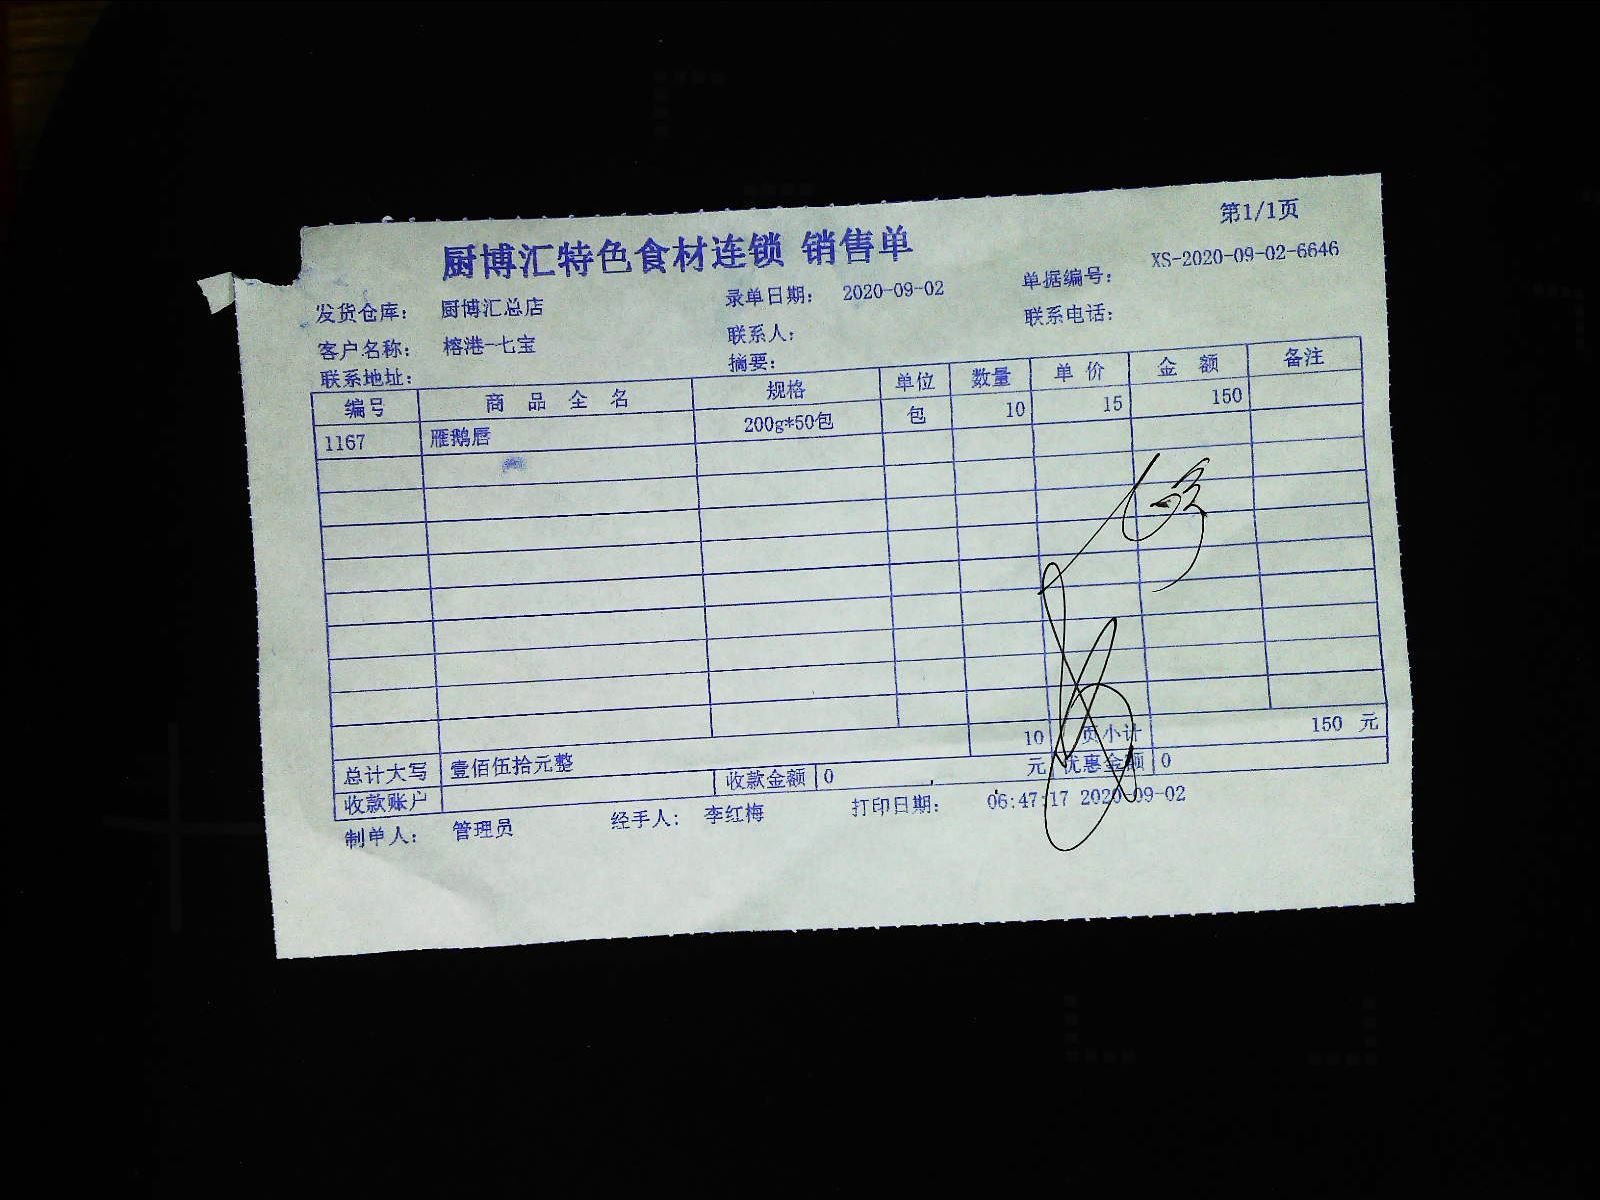 第1/1页
厨博汇特色食材连锁 销售单
发货仓库： 厨博汇总店 录单日期： 2020-09-02 单据编号： XS-2020-09-02-6646
客户名称： 榕港-七宝 联系人： 联系电话：
联系地址： 摘要：
编号 商品全名 规格 单位 数量 单价 金额 备注
1167 雁鹅唇 200g*50包 包 10 15 150
10 页小计 150 元
总计大写 壹佰伍拾元整 元 优惠金额 0
收款账户 收款金额 0
制单人： 管理员 经手人： 李红梅 打印日期： 06:47:17 2020-09-02